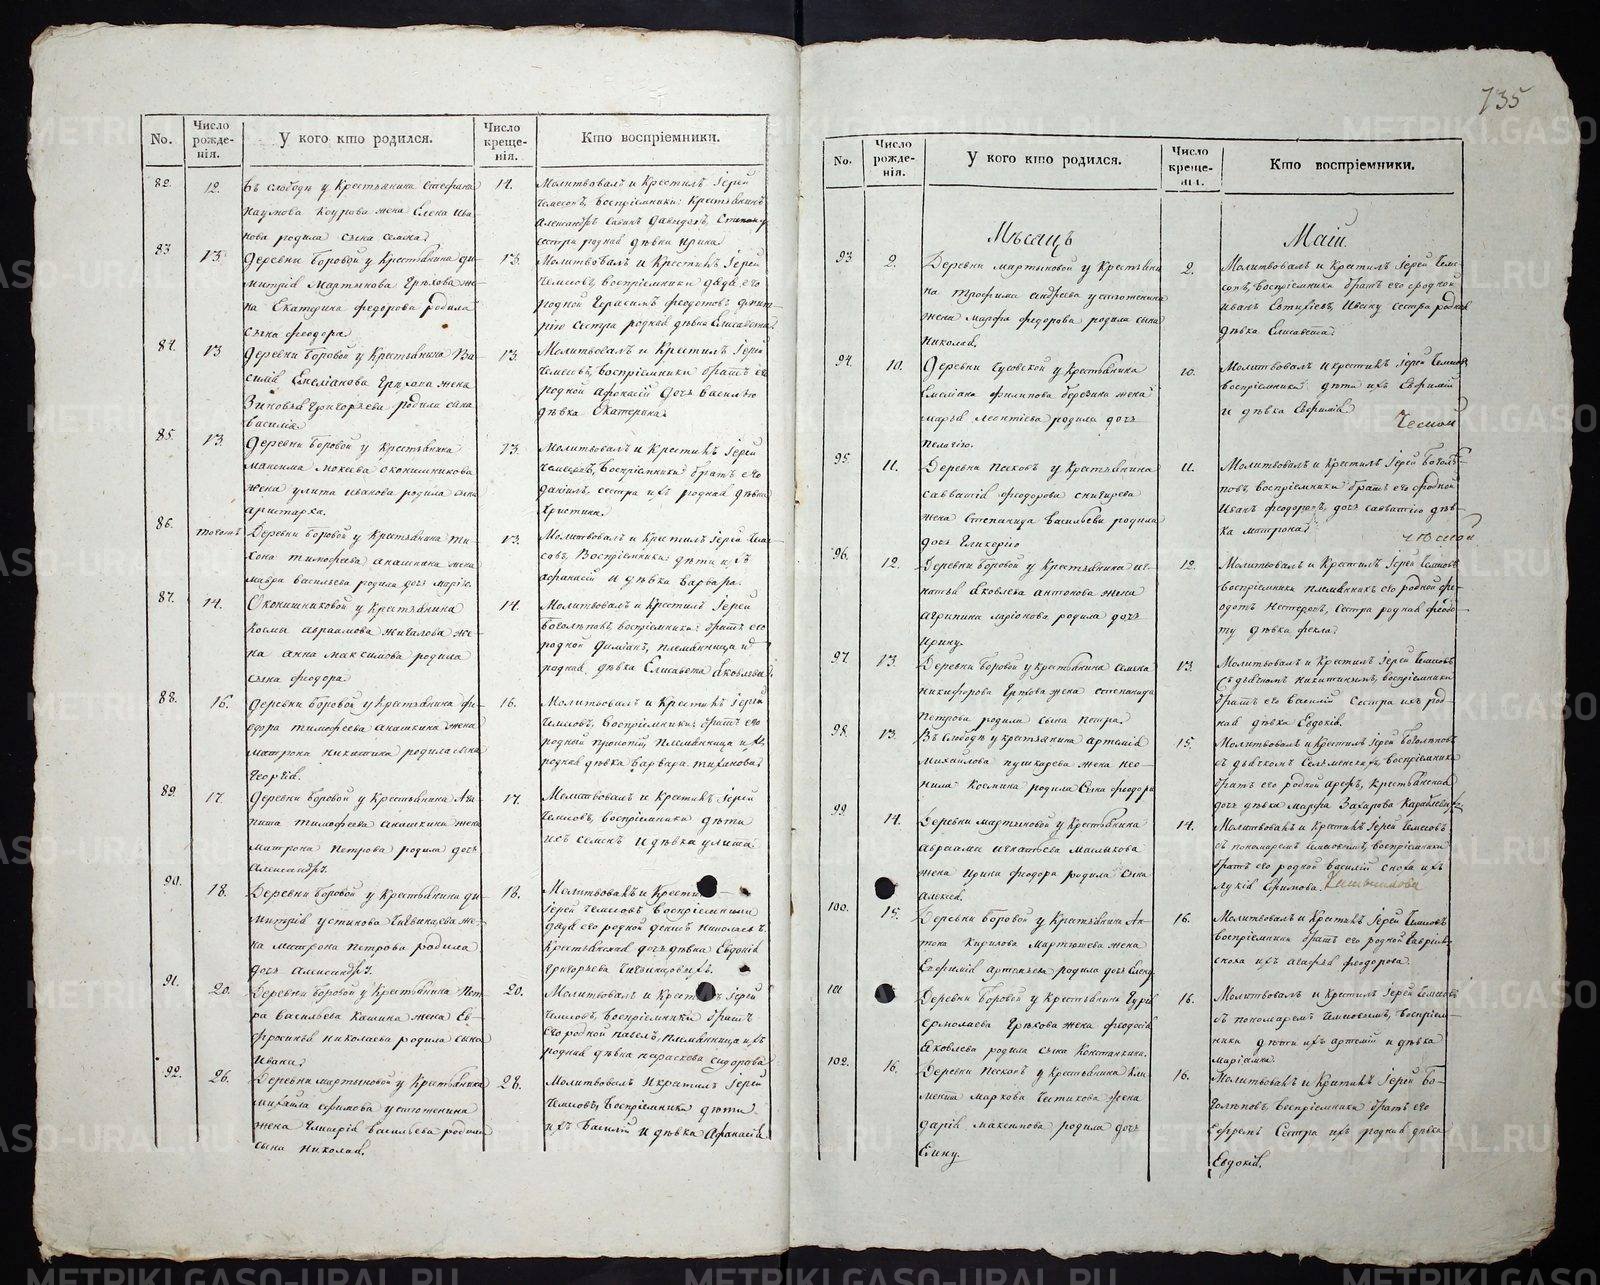 735
No.
Число рожде-нія.
У кого кто родился.
Число креще-нія.
Кто воспріемники.
82.
12.
Въ слободѣ у Крестьянина Стефана
Наумова жена Елена Ива-
нова родила сына Семена.
14.
Молитвовалъ и Крестилъ Іерей
Чемесовъ, Воспріемники: Крестьянинъ
сестра родная дѣвка Ирина.
83.
13.
Деревни Боровой у Крестьянина Ди-
митрія Мартынова Грѣхова же-
на Екатерина Федорова родила
сына Феодора.
13.
Молитвовалъ и Крестилъ Іерей
Чемесовъ, Воспріемники дядя его
родной Герасимъ Федотовъ
сестра родная дѣвка Елисавета.
84.
13
Деревни Боровой у Крестьянина Ва-
силія Емеліанова Грѣхова жена
Зиновья Григорьева родила сына
Василія.
13.
Молитвовалъ и Крестилъ Іерей
Чемесовъ, Воспріемники братъ его
родной Афонасій дочь Василію
дѣвка Екатерина.
85.
13.
Деревни Боровой у Крестьянина
Максима Мокеева Оконишникова
жена Улита Иванова родила сына
Аристарха.
13.
Молитвовалъ и Крестилъ Іерей
Чемесовъ, Воспріемники братъ его
Даніилъ, сестра ихъ родная дѣвка
Христина.
86.
Деревни Боровой у Крестьянина Ти-
хона Тимофеева Анашкина жена
Мавра Васильева родила дочь Марію.
13.
Молитвовалъ и Крестилъ Іерей Чеме-
совъ, Воспріемники: дѣти ихъ
Афанасій и дѣвка Варвара.
87.
14.
Оконишниковой у Крестьянина
Козмы Авраамова Жигалова же-
на Анна Максимова родила
сына Феодора.
14.
Молитвовалъ и Крестилъ Іерей
Боголѣповъ, Воспріемники: братъ его
родной Диміанъ, племянница и
родная дѣвка Елисавета Яковлева.
88.
16.
Деревни Боровой у Крестьянина Фе-
одора Тимофеева Анашкина жена
Матрона Никитина родила сына
Георгія.
16.
Молитвовалъ и Крестилъ Іерей
Чемесовъ, Воспріемники: братъ его
родной Прокопій, племянница ихъ
родная дѣвка Варвара Тиханова.
89.
17.
Деревни Боровой у Крестьянина Ага-
пита Тимофеева Анашкина жена
Матрона Петрова родила дочь
Александру.
17.
Молитвовалъ и Крестилъ Іерей
Чемесовъ, Воспріемники дѣти
ихъ Семенъ и дѣвка Улита
90.
18.
Деревни Боровой у Крестьянина Ди-
митрія Устинова же-
на Матрона Петрова родила
дочь Александру.
18.
Молитвовалъ и Крести
Іерей Чемесовъ Воспріемники
дядя его родной Денисъ Николаевъ
Крестьянская дочь дѣвка Евдокія
Григорьева
91.
20.
Деревни Боровой у Крестьянина Пет-
ра Васильева Кашина жена Ев-
фросинья Николаева родила сына
Ивана.
20.
Молитвовалъ и Крестилъ Іерей
Чемесовъ, Воспріемники братъ
его родной Павелъ, племянница ихъ
родная дѣвка Параскева Сидорова
92.
26.
Деревни Мартыновой у Крестьянина
Михаила Ефимова Устюженина
жена Гликерія Васильева родила
сына Николая.
28.
Молитвовалъ и Крестилъ Іерей
Чемесовъ, Воспріемники дѣти
ихъ Василій и дѣвка Афанасія
No.
Число рожде-нія.
У кого кто родился.
Число креще-нія.
Кто воспріемники.
Мѣсяцъ
Маій.
93
2.
Деревни Мартыновой у Крестьяни-
на Трофима Андреева Устюженина
жена Марфа Федорова родила сына
Николая.
2.
Молитвовалъ и Крестилъ Іерей Чеме-
совъ, Воспріемники братъ его сродной
Иванъ Евтихіевъ, Ивану сестра родная
дѣвка Елисавета.
94.
10.
Деревни Гусевской у Крестьянина
Емеліана Филипова Березина жена
Марья Леонтіева родила дочь
Пелагію.
10.
Молитвовалъ и крестилъ Іерей Чемесовъ
Воспріемники: дѣти ихъ Евфимій
и дѣвка Евфимія
95.
11.
Деревни Песковъ у Крестьянина
Савватія Феодорова Снигирева
жена Степанида Васильева родила
дочь Гликерію
11.
Молитвовалъ и Крестилъ Іерей Боголѣ-
повъ, Воспріемники братъ его сродной
Иванъ Феодоровъ, дочь Савватію дѣв-
ка Матрона.
96.
12.
Деревни Боровой у Крестьянина Иг-
натья Яковлева Антонова жена
Агрипина Ларіонова родила дочь
Ирину.
12.
Молитвовалъ и Крестилъ Іерей Чемесовъ
Воспріемники племянникъ его родной Фе-
одотъ Нестеровъ, сестра родная Феодо-
ту дѣвка Фекла.
97.
13.
Деревни Боровой у Крестьянина Семена
Никифорова Грѣхова жена Степанида
Петрова родила сына Петра.
13
Молитвовалъ и Крестилъ Іерей Чемесовъ
съ дьячкомъ Никитинымъ, Воспріемники
братъ его Василій Сестра ихъ род-
ная дѣвка Евдокія.
98.
13.
Въ Слободѣ у Крестьянина Артемія
Михайлова Пушкарева жена Нео-
нила Козмина родила сына Феодора
15.
Молитвовалъ и Крестилъ Іерей Боголѣповъ
съ дьячкомъ Селеменскимъ, Воспріемники
братъ его родной Арефъ, Крестьянская
дочь дѣвка Марфа Захарова
99.
14.
Деревни Мартыновой у Крестьянина
Авраама Игнатьева Маслыкова
жена Ирина Феодора родила сына
Алексія.
14.
Молитвовалъ и Крестилъ Іерей Чемесовъ
съ пономаремъ Чемесовымъ, Воспріемники
братъ его родной Василій сноха ихъ
Лукія Ефимова.
100.
15.
Деревни Боровой у Крестьянина Ан-
тона Кирилова Мартюшева жена
Евфимія Артемьева родила дочь Елену
16.
Молитвовалъ и Крестилъ Іерей Чемесовъ
Воспріемники братъ его родной Гавріилъ
сноха ихъ Агафья Феодорова.
101
Деревни Боровой у Крестьянина Гурія
Ермолаева Грѣхова жена Феодосія
Яковлева родила сына Константина.
16.
Молитвовалъ и Крестилъ Іерей Чемесовъ
съ пономаремъ Чемесовымъ, Воспріем-
ники дѣти ихъ Артемій и дѣвка
Маріамна.
102.
16.
Деревни Песковъ у Крестьянина Кли-
мента Маркова Чистякова жена
Дарія Максимова родила дочь
Елену.
16.
Молитвовалъ и Крестилъ Іерей Бо-
голѣповъ Воспріемники братъ его
Ефремъ Сестра ихъ родная дѣвка
Евдокія.
METRIKI.GASO-URAL.RU